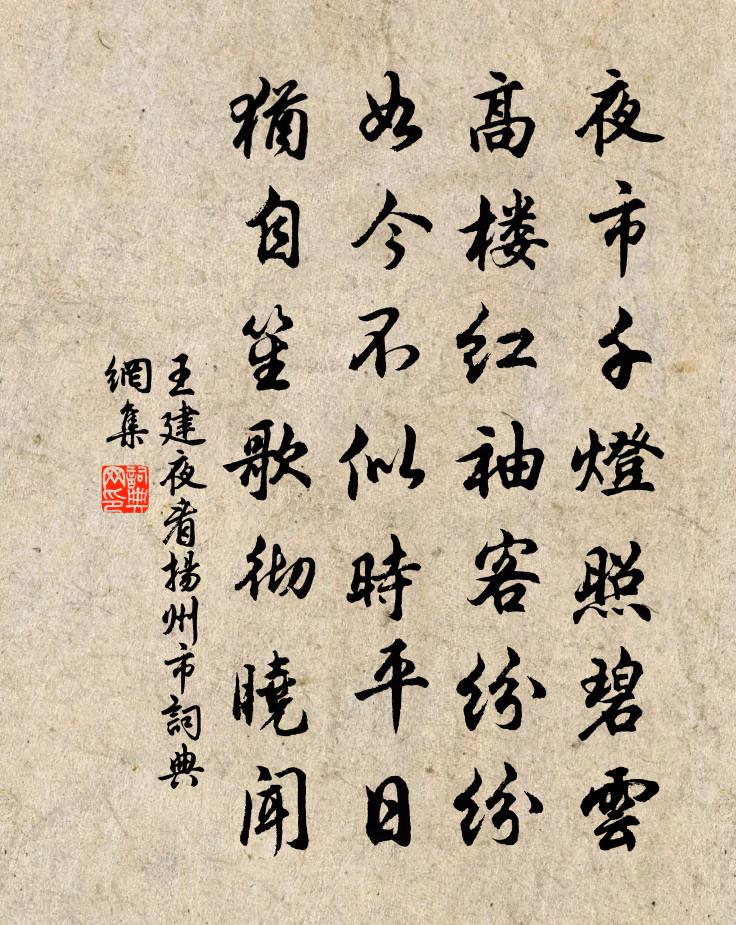 夜市千燈照碧雲
高楼紅袖客紛紛
如今不似時平日
猶自笙歌彻曉聞
王建夜看揚州市詞典
網集
詞典网印